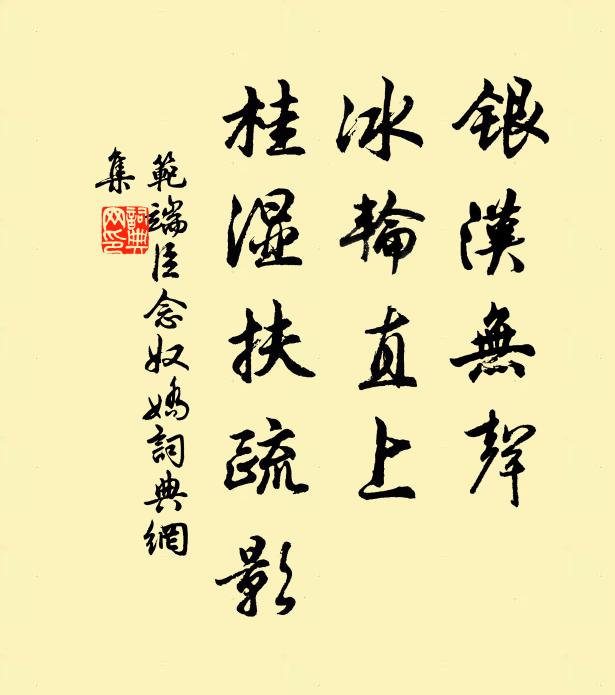 銀漢無聲
冰輪直上
桂濕扶疏影
範端臣念奴嬌詞典網
集
詞典
网印